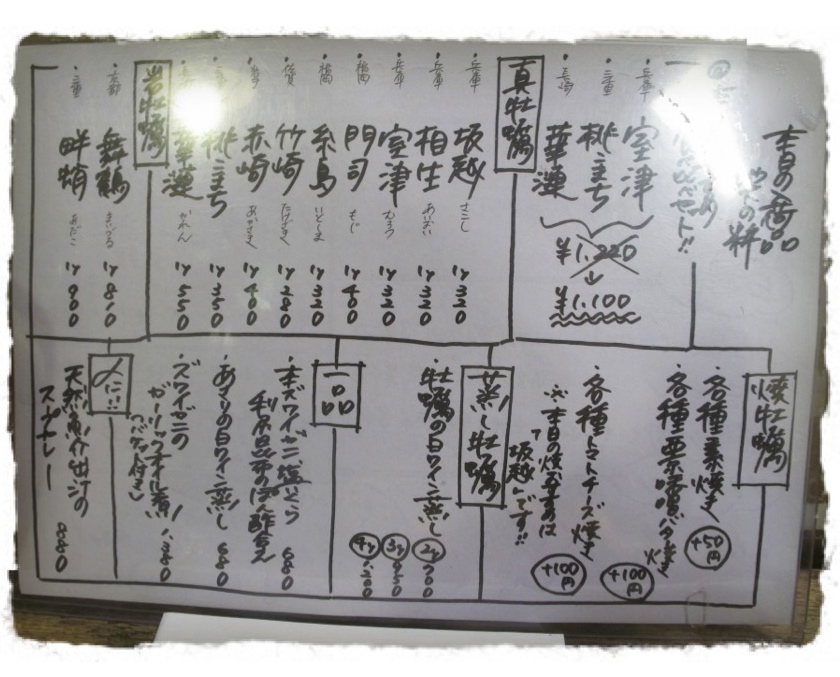 本日の
の料
セット!!
兵庫 室津
三重 桃こまち
長崎 華漣
¥1,220
↓
¥1,100
真牡蠣
兵庫 坂越 さこし 1ヶ 320
兵庫 相生 あいおい 1ヶ 320
兵庫 室津 むろつ 1ヶ 320
福岡 門司 もじ 1ヶ 400
福岡 糸島 いとしま 1ヶ 320
佐賀 竹崎 たけざき 1ヶ 280
赤崎 あかさき 1ヶ 400
桃こまち 1ヶ 350
華漣 かれん 1ヶ 550
岩牡蠣
京都 舞鶴 まいづる 1ヶ 810
三重 畔蛸 あだこ 1ヶ 900
焼牡蠣
各種素焼き +50円
各種栗味噌バター焼き +100円
各種トマトチーズ焼き +100円
※本日の焼き牡蠣は
「坂越」です!!
蒸し牡蠣
牡蠣の白ワイン蒸し
2ヶ 700
3ヶ 950
4ヶ 1,200
一品
・本ズワイガニ塩ゆで
利尻昆布のぽん酢添え 680
・あさりの白ワイン蒸し 680
・ズワイガニの
ガーリックオイル煮 1,380
(バケット付き)
〆に!!
天然魚介出汁の
スープカレー 880